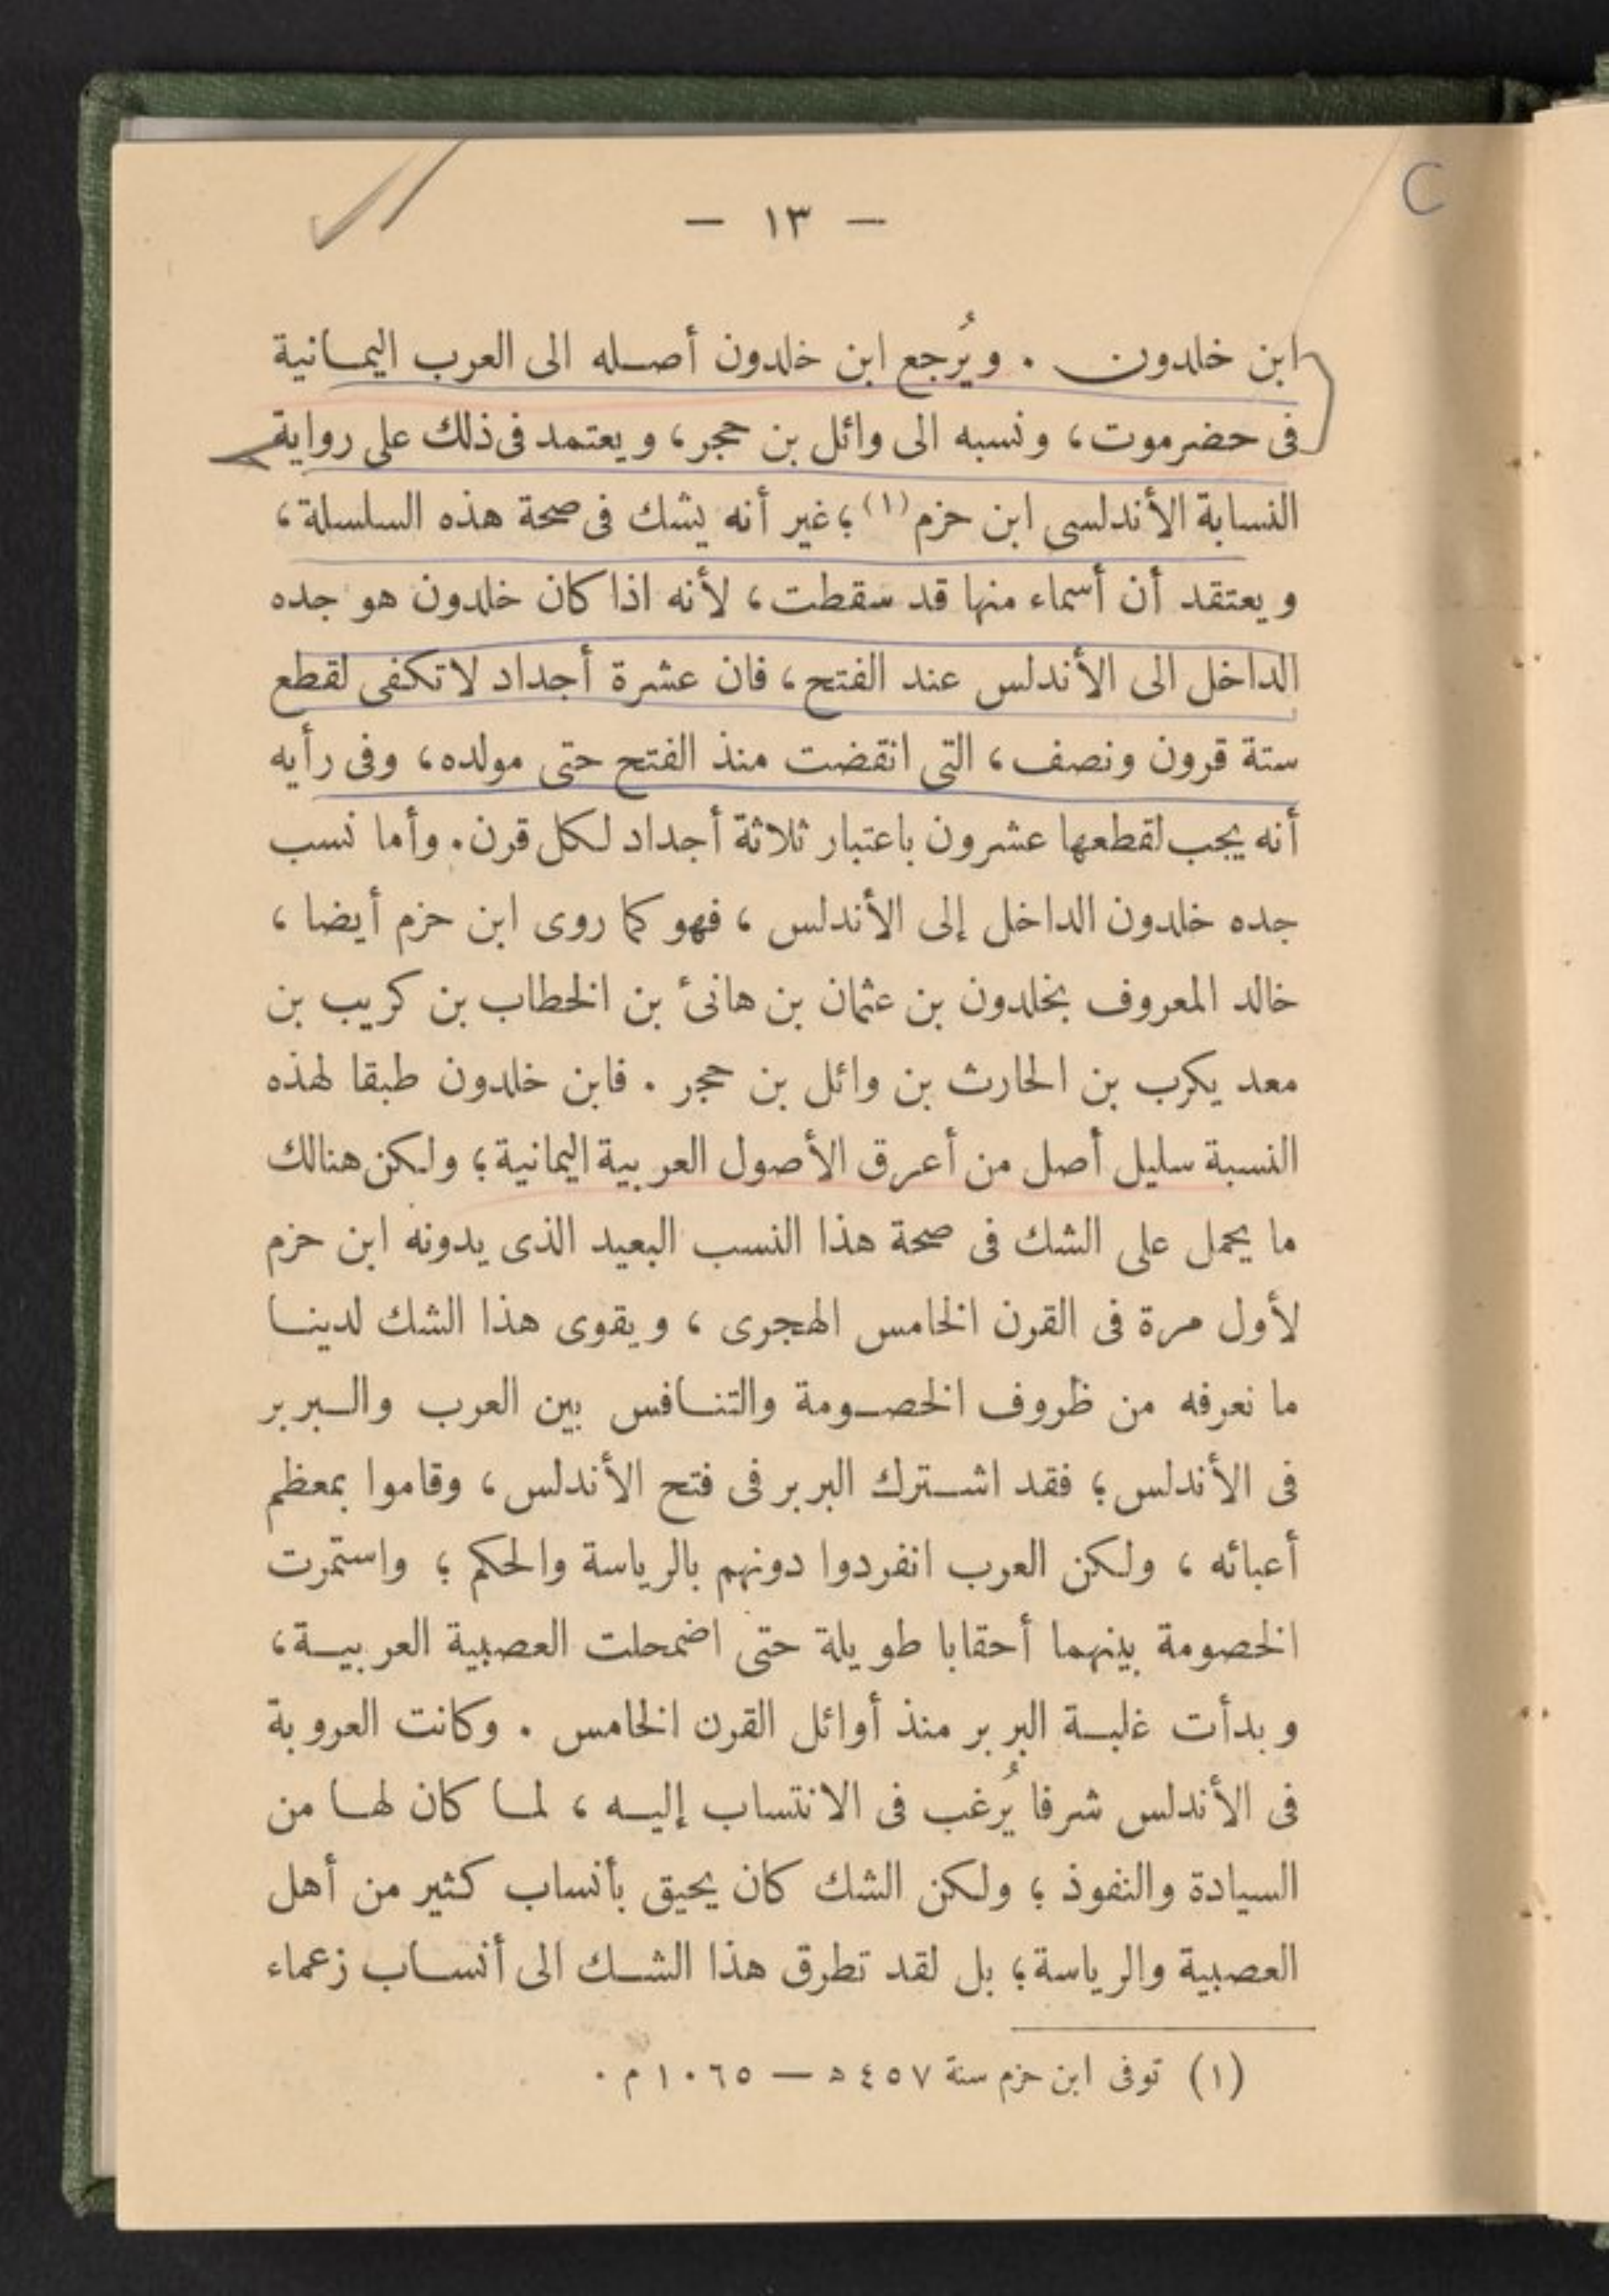 — ١٣ —
C
ابن خلدون . ويُرجع ابن خلدون أصله الى العرب اليمانية
فى حضرموت، ونسبه الى وائل بن حجر، ويعتمد فى ذلك على رواية
النسابة الأندلسى ابن حزم (١)؛ غير أنه يشك فى صحة هذه السلسلة،
ويعتقد أن أسماء منها قد سقطت، لأنه اذا كان خلدون هو جده
الداخل الى الأندلس عند الفتح، فان عشرة أجداد لا تكفى لقطع
ستة قرون ونصف، التى انقضت منذ الفتح حتى مولده، وفى رأيه
أنه يجب لقطعها عشرون باعتبار ثلاثة أجداد لكل قرن. وأما نسب
جده خلدون الداخل إلى الأندلس، فهو كما روى ابن حزم أيضا،
خالد المعروف بخلدون بن عثمان بن هانئ بن الخطاب بن كريب بن
معد يكرب بن الحارث بن وائل بن حجر . فابن خلدون طبقا لهذه
النسبة سليل أصل من أعرق الأصول العربية اليمانية؛ ولكن هنالك
ما يحمل على الشك فى صحة هذا النسب البعيد الذى يدونه ابن حزم
لأول مرة فى القرن الخامس الهجرى، ويقوى هذا الشك لدينا
ما نعرفه من ظروف الخصومة والتنافس بين العرب والبربر
فى الأندلس؛ فقد اشترك البربر فى فتح الأندلس، وقاموا بمعظم
أعبائه، ولكن العرب انفردوا دونهم بالرياسة والحكم؛ واستمرت
الخصومة بينهما أحقابا طويلة حتى اضمحلت العصبية العربية،
وبدأت غلبة البربر منذ أوائل القرن الخامس . وكانت العروبة
فى الأندلس شرفا يُرغب فى الانتساب إليه، لما كان لها من
السيادة والنفوذ؛ ولكن الشك كان يحيق بأنساب كثير من أهل
العصبية والرياسة؛ بل لقد تطرق هذا الشك الى أنساب زعماء
(١) توفى ابن حزم سنة ٤٥٧ ه — ١٠٦٥ م .